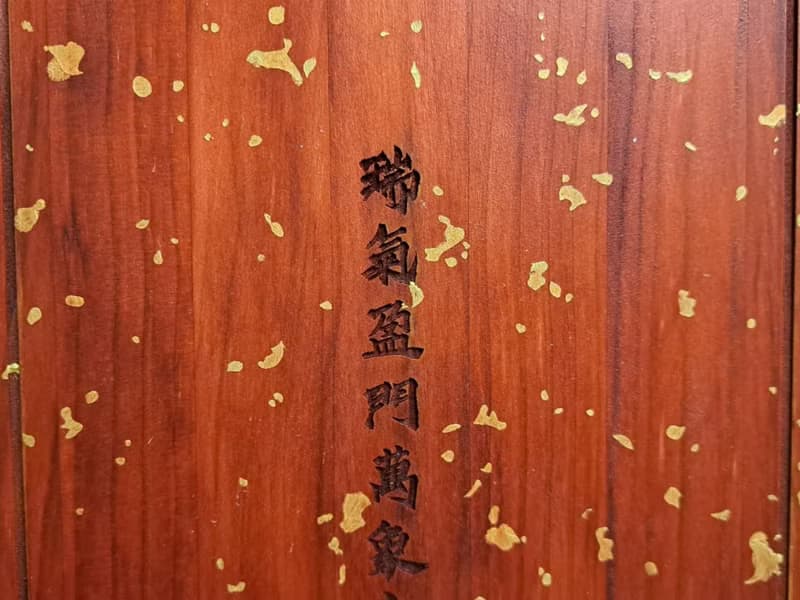 瑞氣盈門萬象